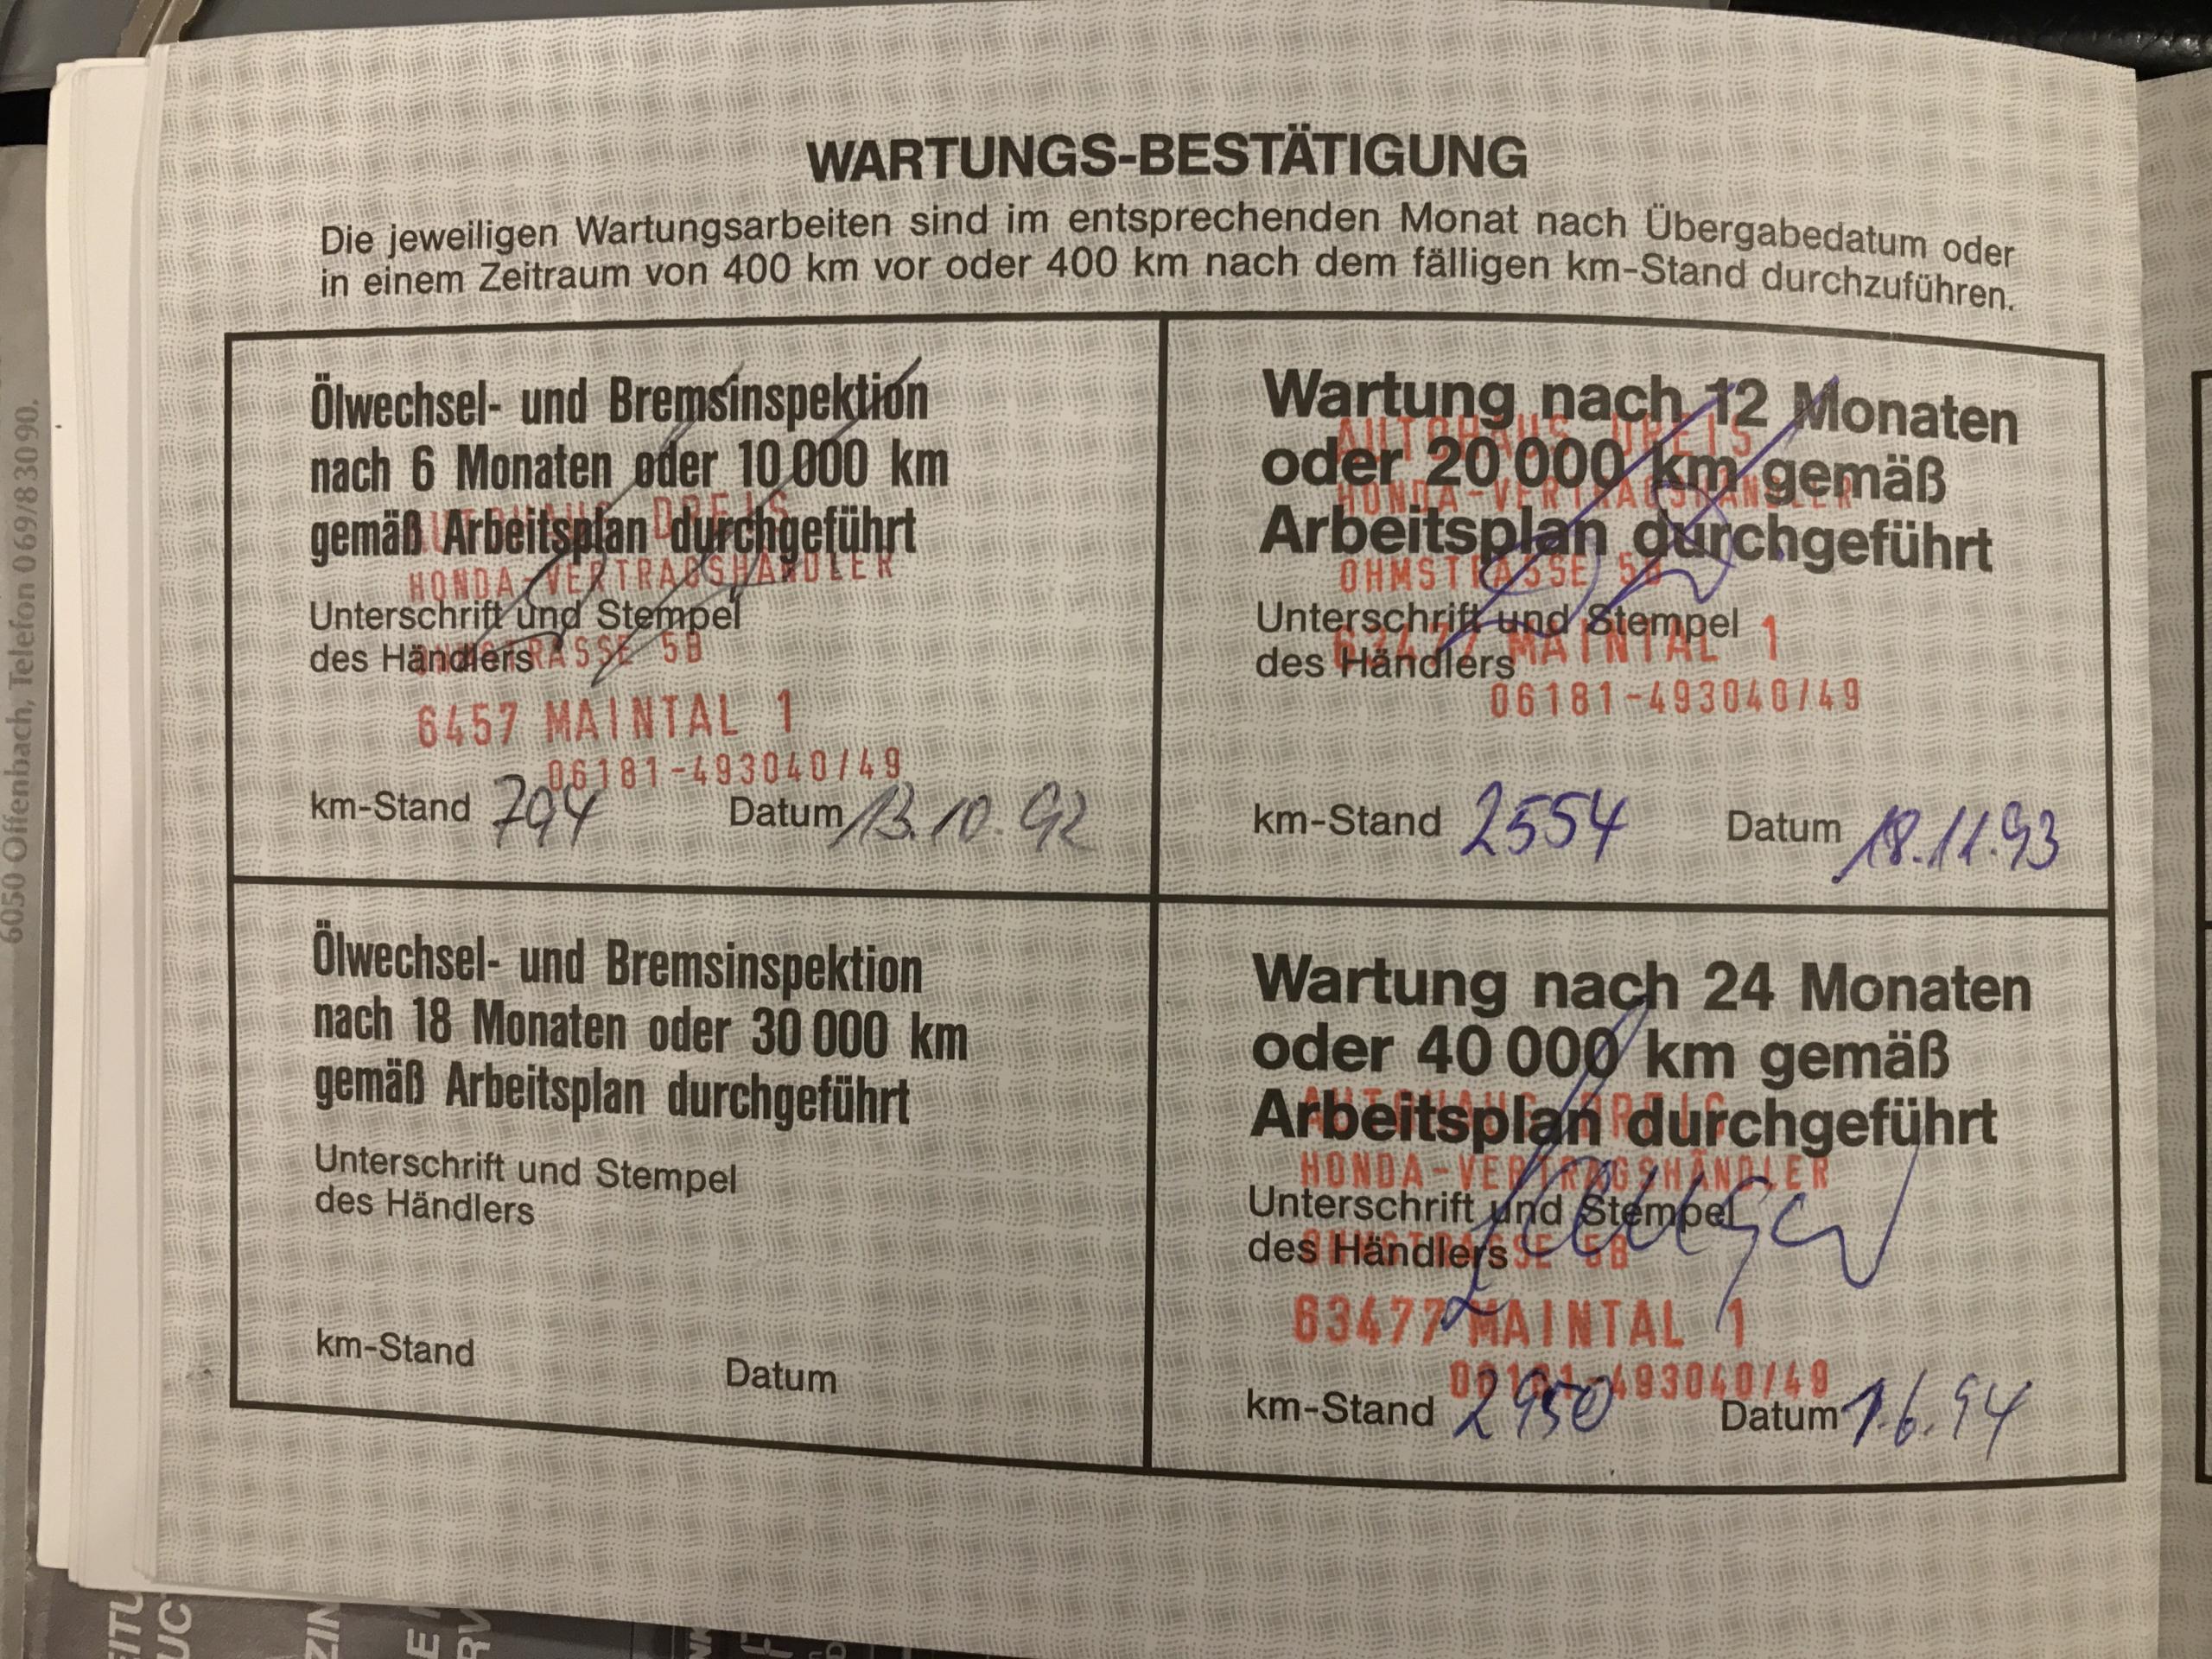 WARTUNGS-BESTÄTIGUNG
Die jeweiligen Wartungsarbeiten sind im entsprechenden Monat nach Übergabedatum oder
in einem Zeitraum von 400 km vor oder 400 km nach dem fälligen km-Stand durchzuführen.
Ölwechsel- und Bremsinspektion
nach 6 Monaten oder 10 000 km
gemäß Arbeitsplan durchgeführt
AUTOHAUS DREIS
HONDA-VERTRAGSHÄNDLER
Unterschrift und Stempel
des Händlers
OHMSTRASSE 5B
6457 MAINTAL 1
06181-493040/49
km-Stand 794 Datum 13.10.92
Wartung nach 12 Monaten
oder 20 000 km gemäß
Arbeitsplan durchgeführt
AUTOHAUS DREIS
HONDA-VERTRAGSHÄNDLER
OHMSTRASSE 5B
Unterschrift und Stempel
des Händlers
63477 MAINTAL 1
06181-493040/49
km-Stand 2554 Datum 18.11.93
Ölwechsel- und Bremsinspektion
nach 18 Monaten oder 30 000 km
gemäß Arbeitsplan durchgeführt
Unterschrift und Stempel
des Händlers
km-Stand
Datum
Wartung nach 24 Monaten
oder 40 000 km gemäß
Arbeitsplan durchgeführt
AUTOHAUS DREIS
HONDA-VERTRAGSHÄNDLER
Unterschrift und Stempel
des Händlers
OHMSTRASSE 5B
63477 MAINTAL 1
06181-493040/49
km-Stand 2950 Datum 1.6.94
6050 Offenbach, Telefon 069/83090.